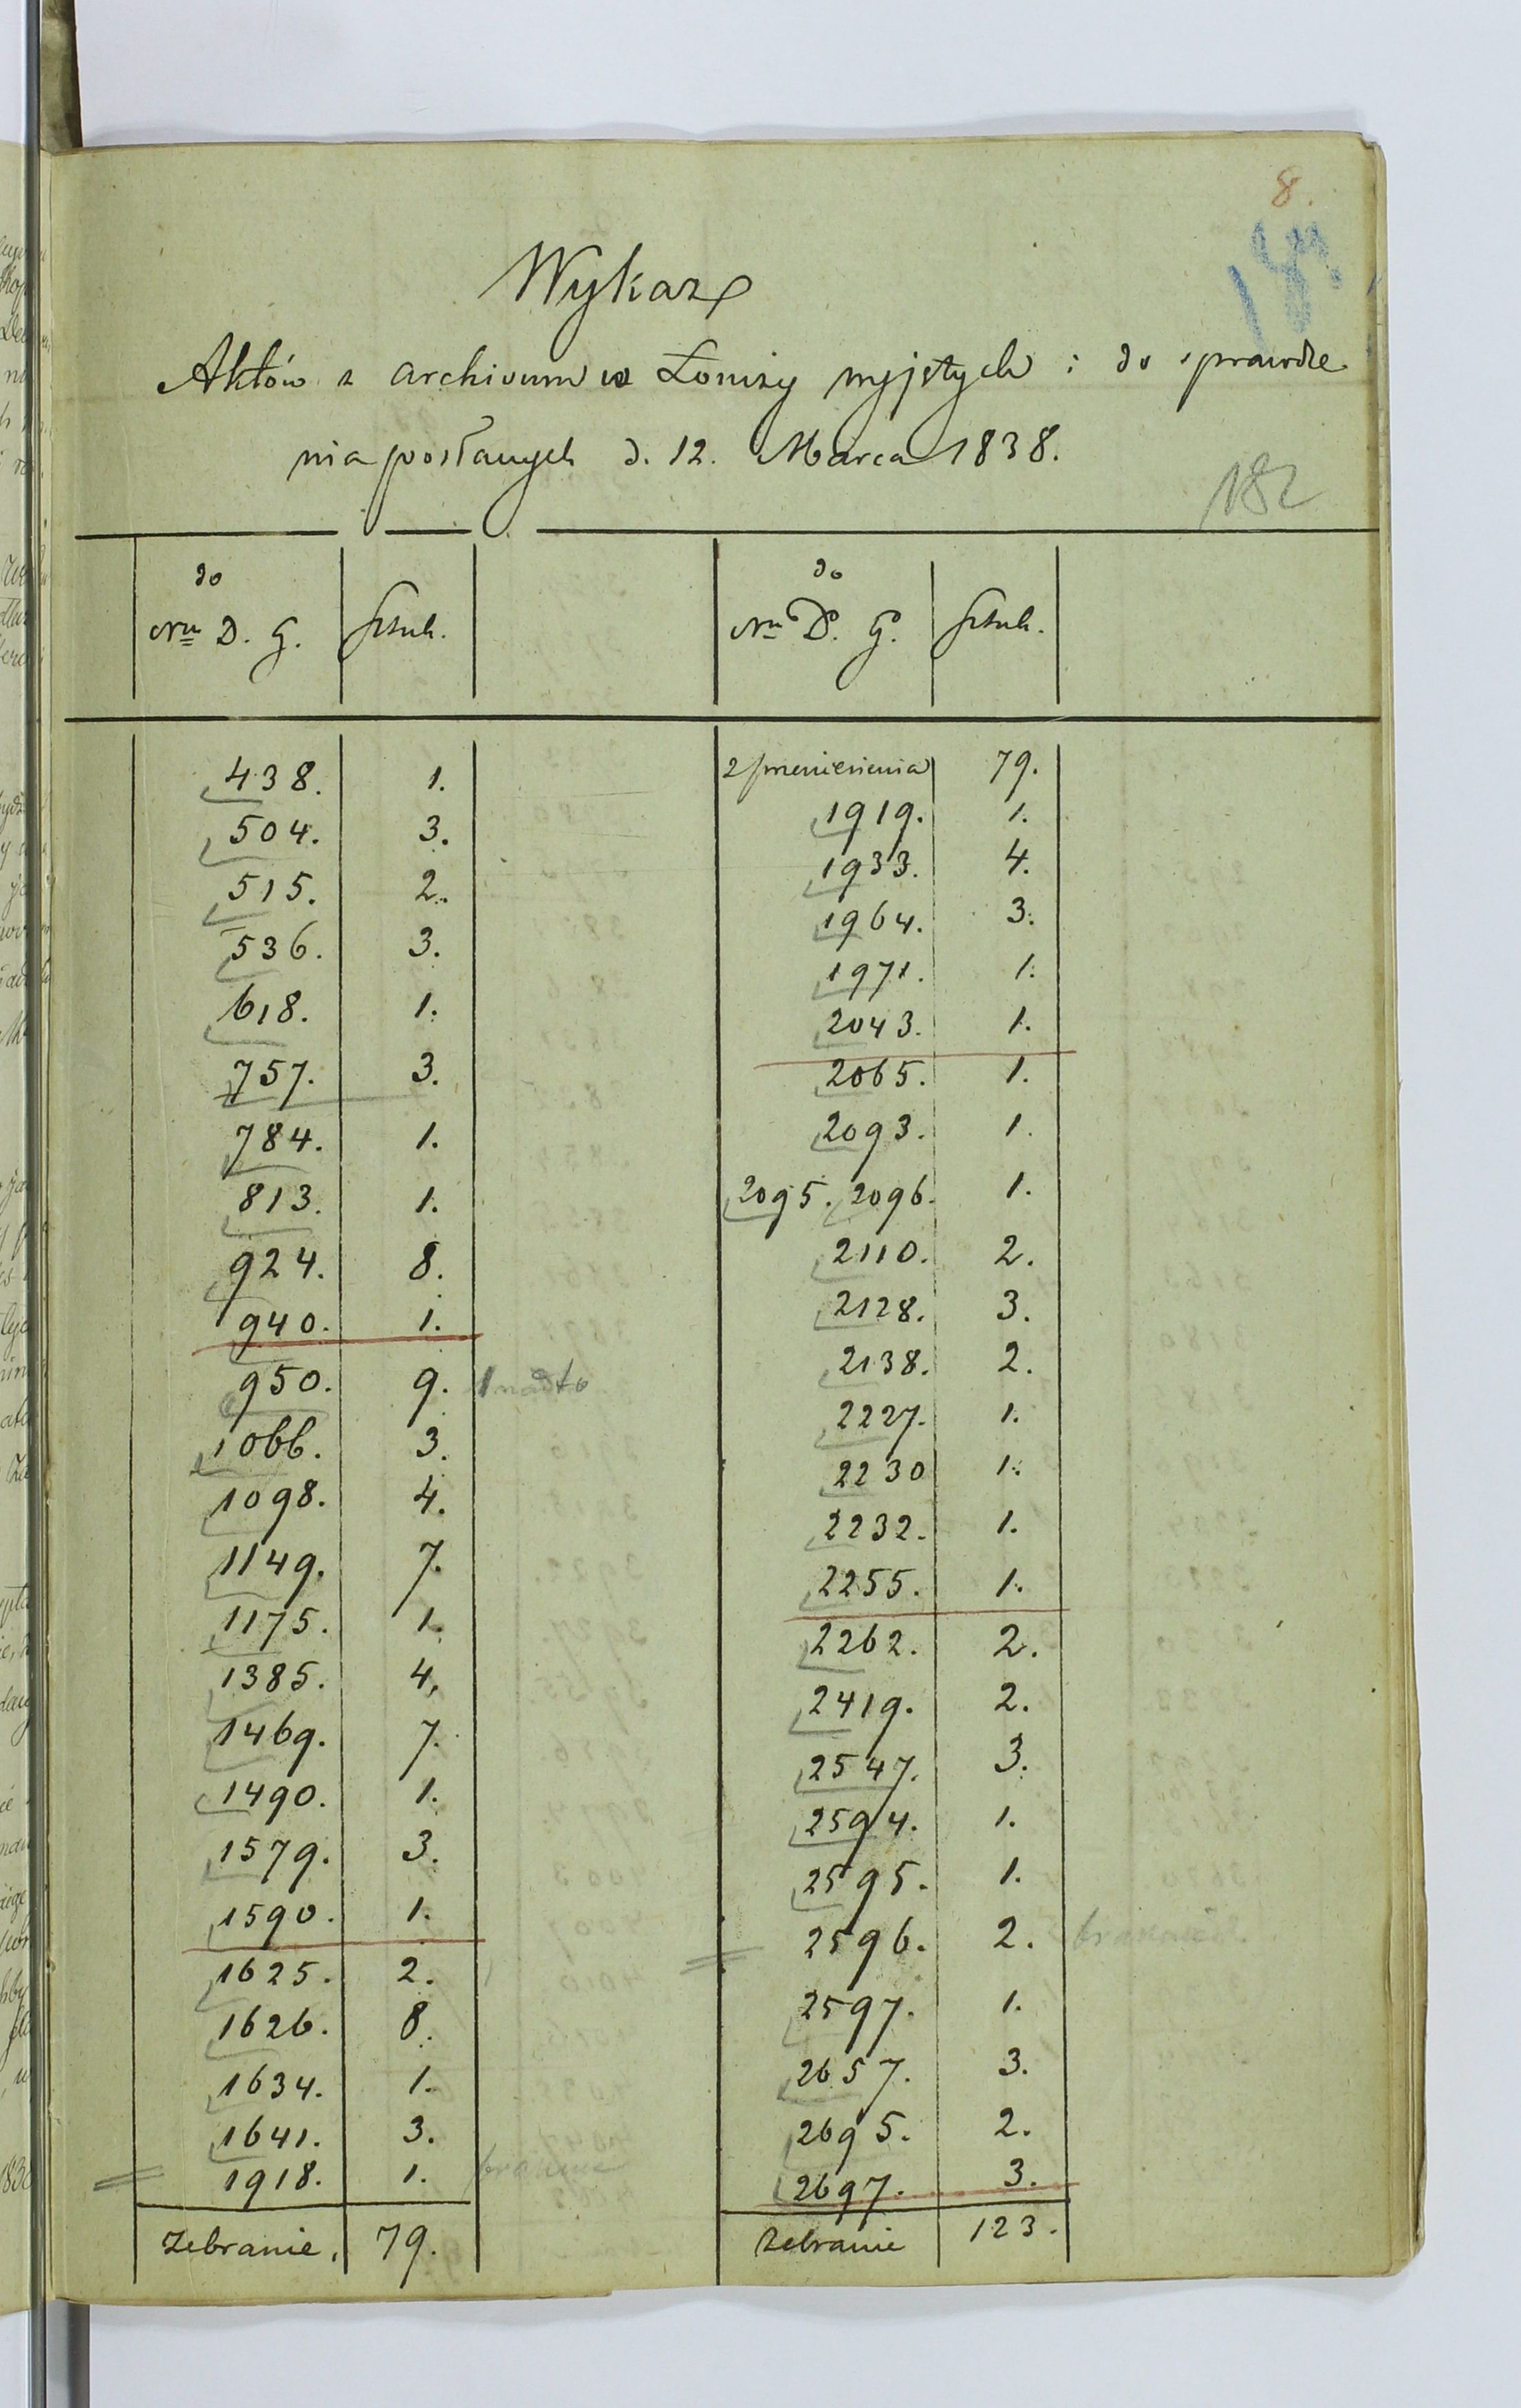 8.
Wykaz
Aktów z archivum w Łomży wyjętych i do sprawdze
nia posłanych d. 12. Marca 1838.
182
do do
Nru D. G. Sztuk. Nru D. G. Sztuk.
438. 1. z przeniesienia 79.
504. 3. 1919. 1.
515. 2. 1933. 4.
536. 3. 1964. 3.
618. 1. 1971. 1.
757. 3. 2043. 1.
784. 1. 2065. 1.
813. 1. 2093. 1.
924. 8. 2095. 2096. 1.
940. 1. 2110. 2.
950. 9. 1 nadto 2128. 3.
1066. 3. 2138. 2.
1098. 4. 2227. 1.
1149. 7. 2230 1.
1175. 1. 2232. 1.
1385. 4. 2255. 1.
1469. 7. 2262. 2.
1490. 1. 2419. 2.
1579. 3. 2547. 3.
1590. 1. 2594. 1.
1625. 2. 2595. 1.
1626. 8. 2596. 2.
1634. 1. 2597. 1.
1641. 3. 2657. 3.
1918. 1. 2695. 2.
2697. 3.
Zebranie, 79. Zebranie 123.